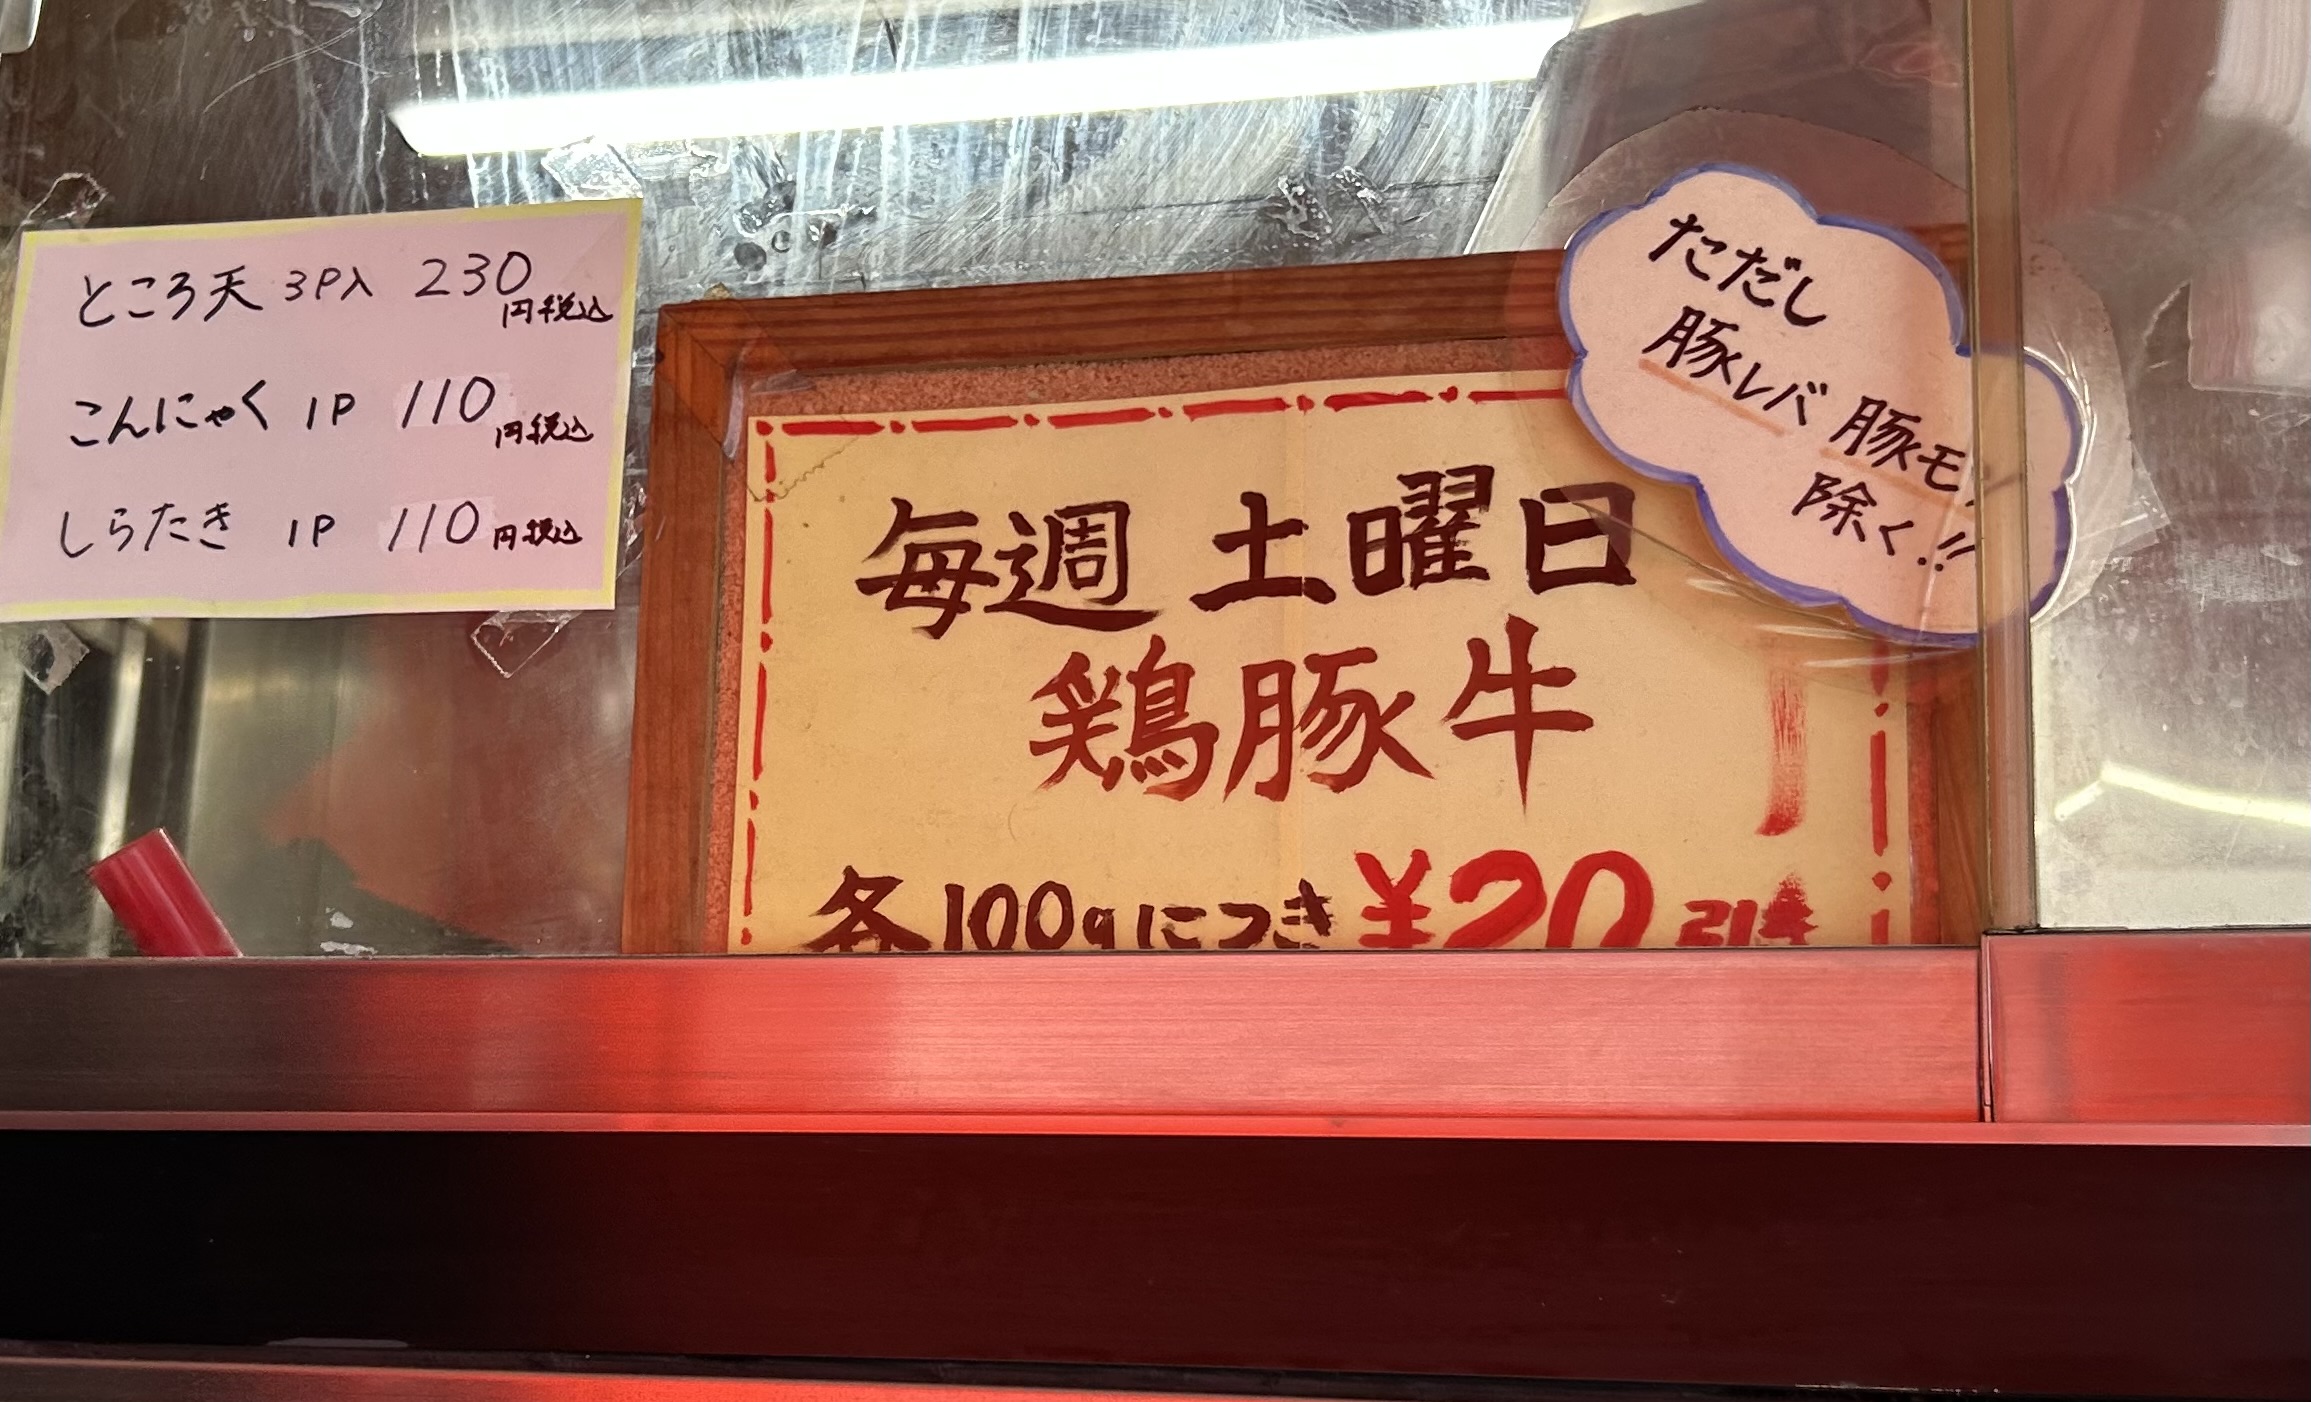 ところ天 3P入 230円税込
こんにゃく 1P 110円税込
しらたき 1P 110円税込
ただし
豚レバ 豚モツ
除く!!
毎週 土曜日
鶏豚牛
各100gにつき ¥20引き